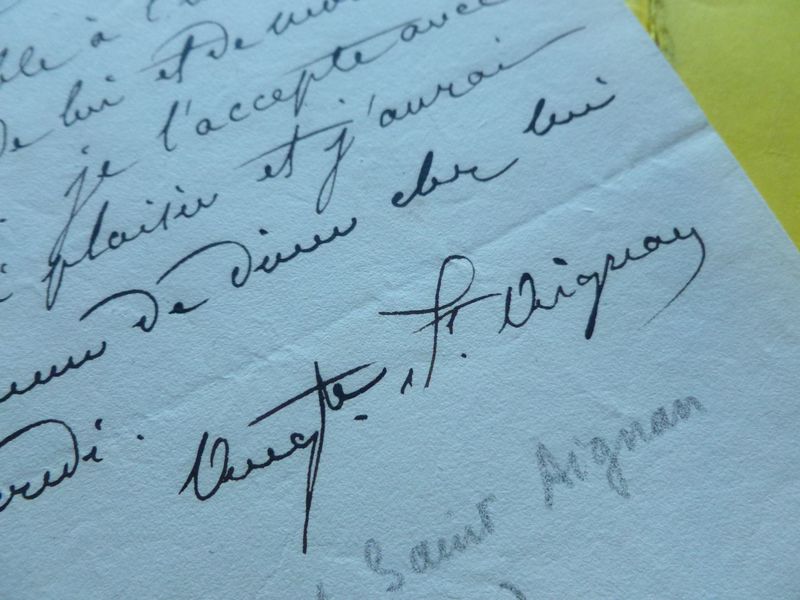 à l'
de lui et de
je l'accepte avec
plaisir et j'aurai
de diner chez lui
Aug.te St. Aignan
Saint Aignan